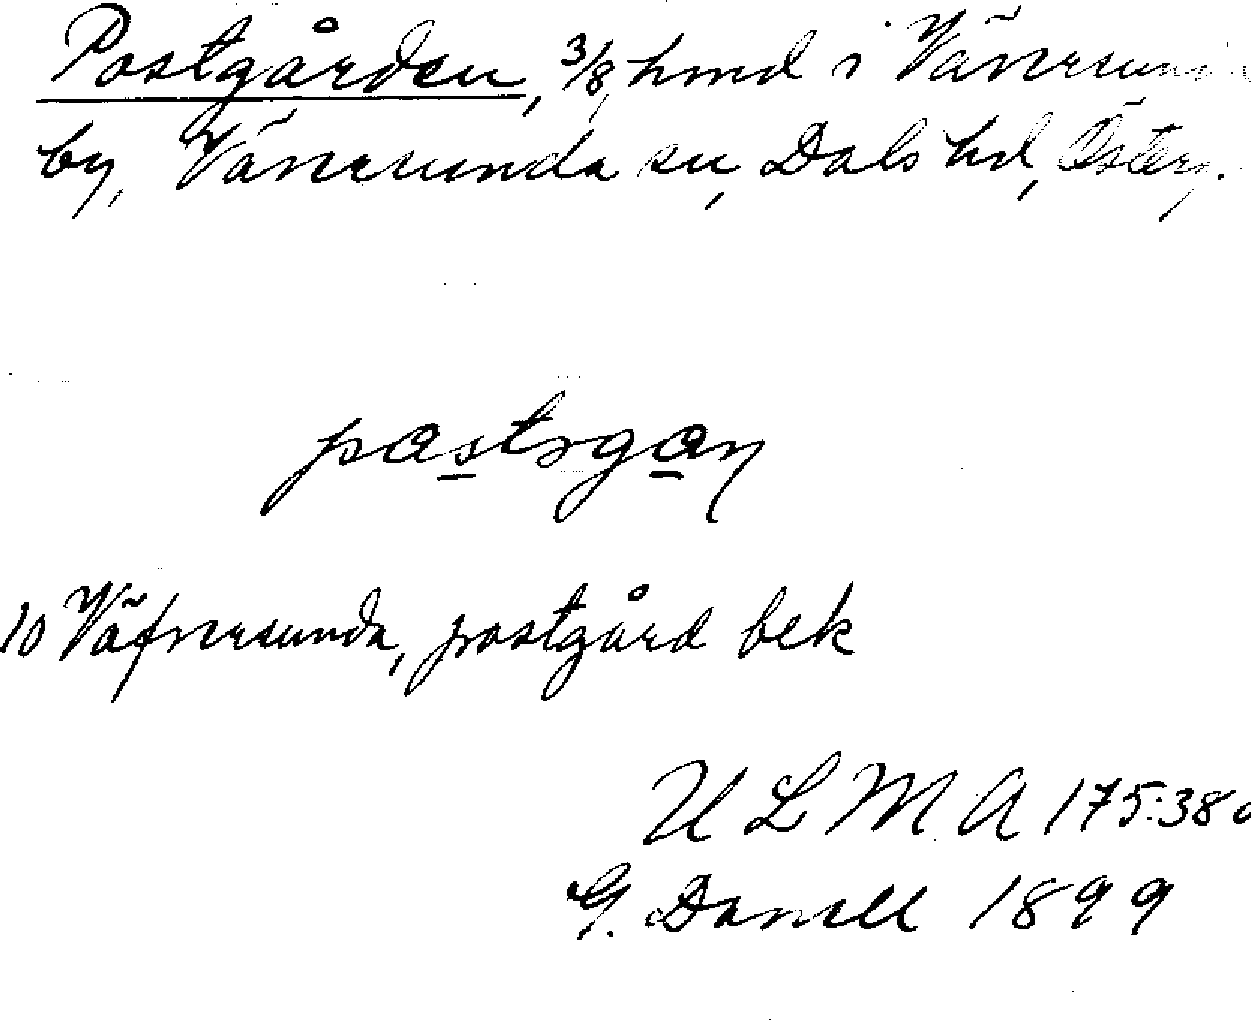 Postgården, 3/8 hmd i Vänersunda
by, Vänersunda sn, Dals hd, Österg.
postrgan
10 Väfnersunda, postgård bek
U L M A 175:38
G. Danell 1899